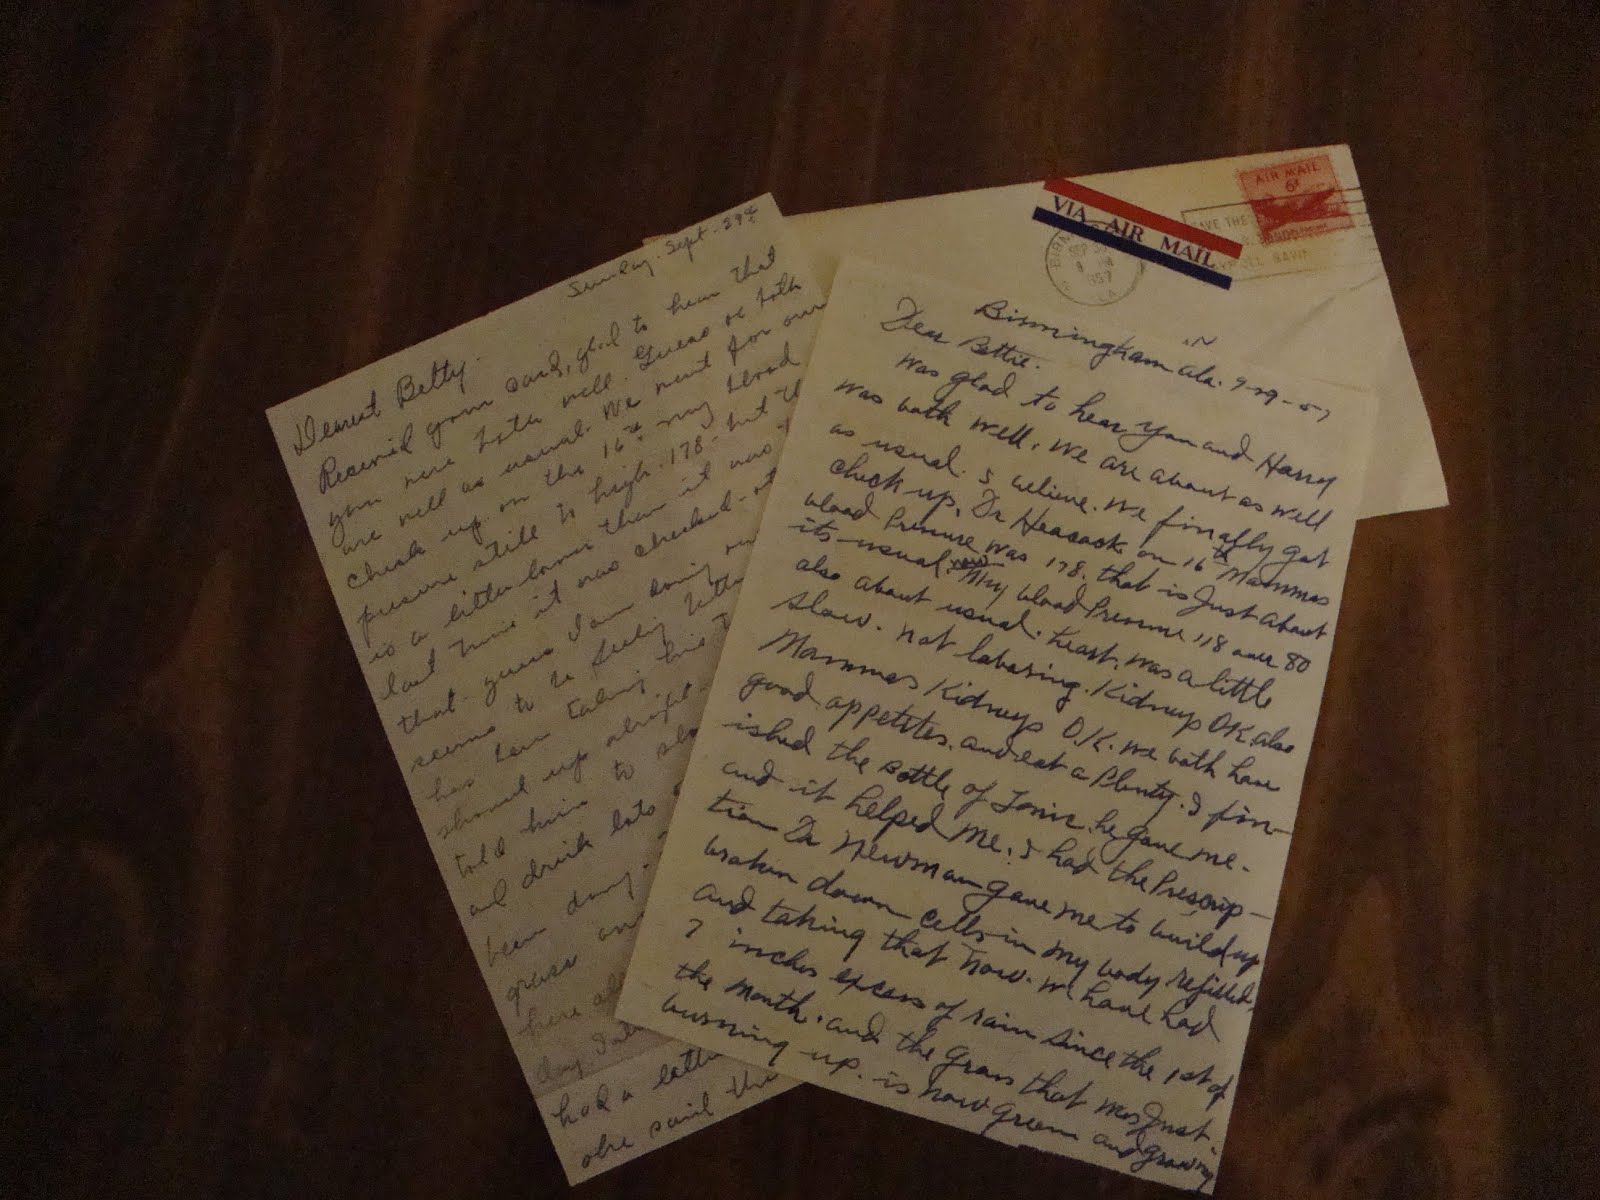 Sunday. Sept. 29th
Dearest Betty.
Received your card, glad to hear that
you were both well. Guess we both
are well as usual. We went for our
check up on the 16th. my blood
pressure still to high. 178. but
is a little lower than it was
last time it was checked.
that. guess I am doing
seems to be feeling better
has been taking his
showed up alright.
told him to
and drink lots
been doing.
grass
here
day.
had a letter
she said the
VIA AIR MAIL
AIR MAIL
6¢
SAVE THE
Birmingham Ala. 9-29-57
Dear Bettie.
was glad to hear you and Harry
was both well. we are about as well
as usual. I believe. we finally got
check up. Dr Heacock on 16th Mammas
blood Pressure was 178. that is Just about
its usual. My blood Pressure 118 over 80
also about usual. heart. was a little
slow. not laboring. Kidneys OK. also
Mammas Kidneys O.K. we both have
good appetites. and eat a Plenty. I fin-
ished the Bottle of Tonic he gave me.
and it helped me. I had the Prescrip-
tion Dr Newman gave me to build up
broken down cells in my body refilled.
and taking that now. we have had
7 inches excess of rain since the 1st of
the month. and the grass that was Just
burning up. is now green and growing